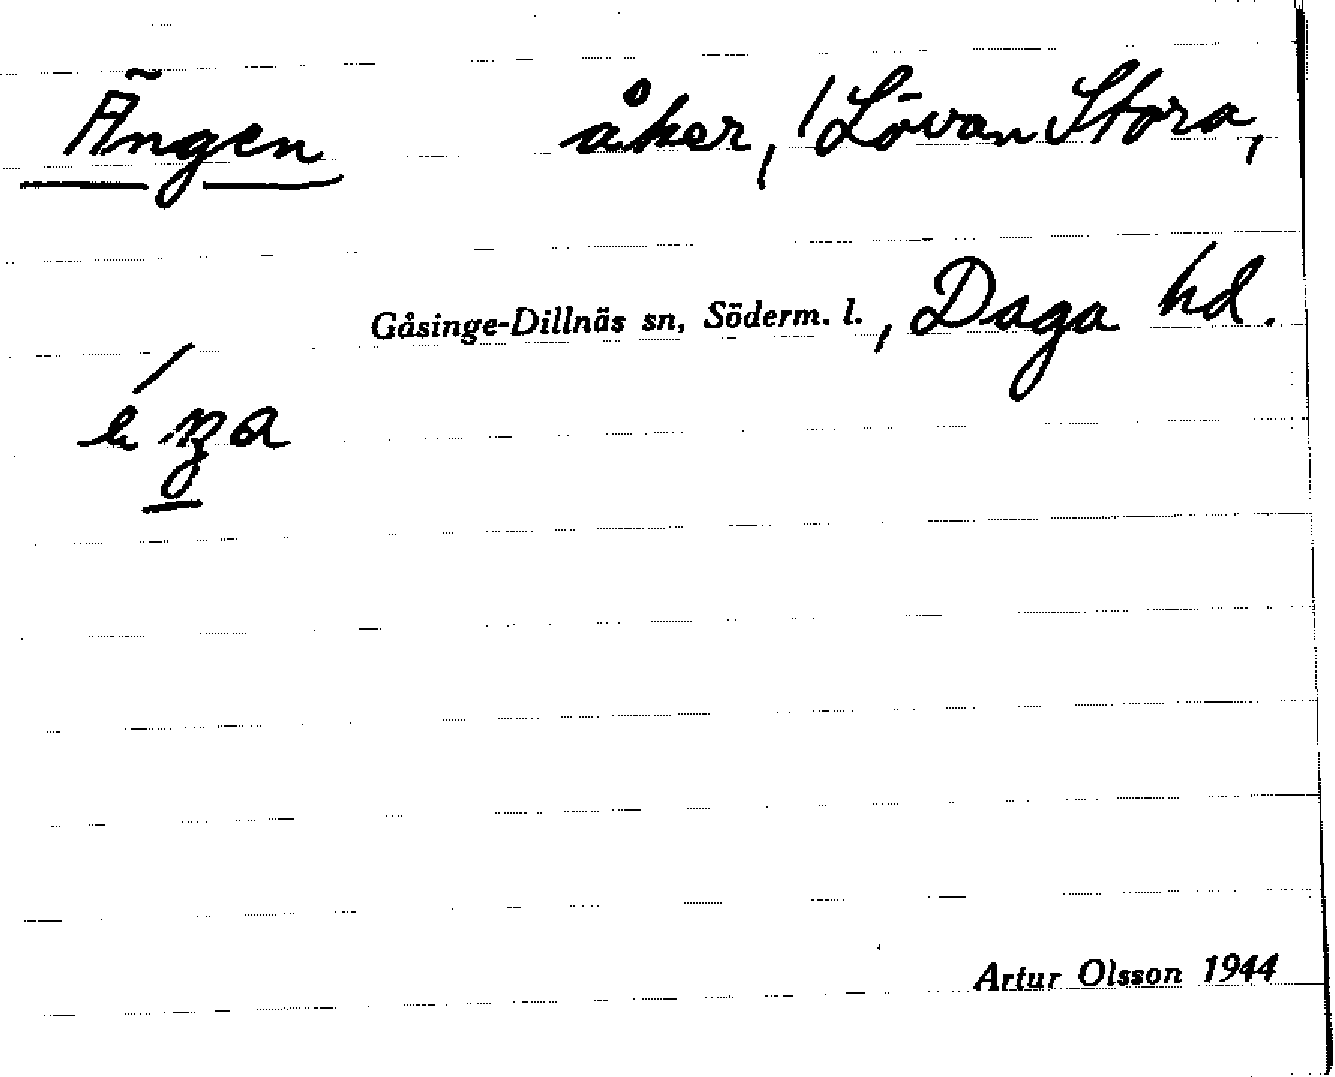 Ängen åker, /Lövan Stora,
Gåsinge-Dillnäs sn, Söderm. l., Daga hd.
Artur Olsson 1944